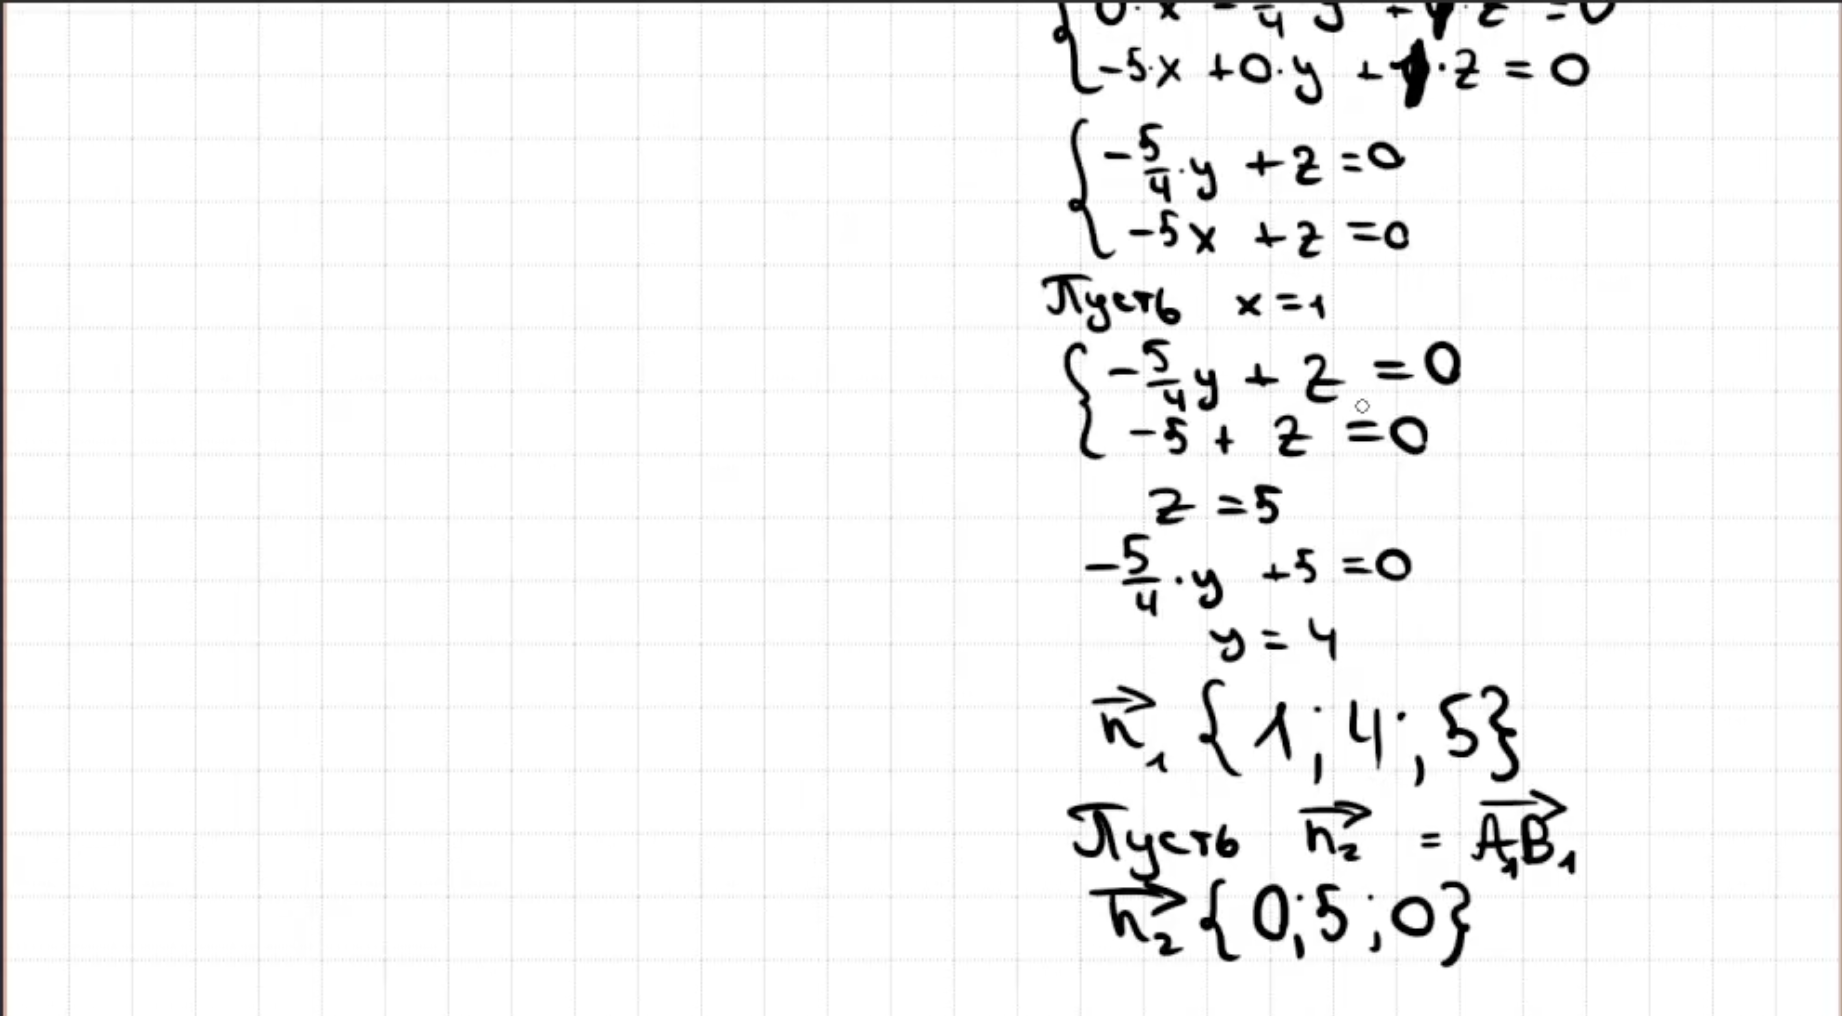 0·x - 5/4 y + 1·z = 0
-5·x + 0·y + 1·z = 0
-5/4·y + z = 0
-5x + z = 0
Пусть x = 1
-5/4 y + z = 0
-5 + z = 0
z = 5
-5/4·y + 5 = 0
y = 4
n₁ {1; 4; 5}
Пусть n₂ = A₁B₁
n₂ {0; 5; 0}